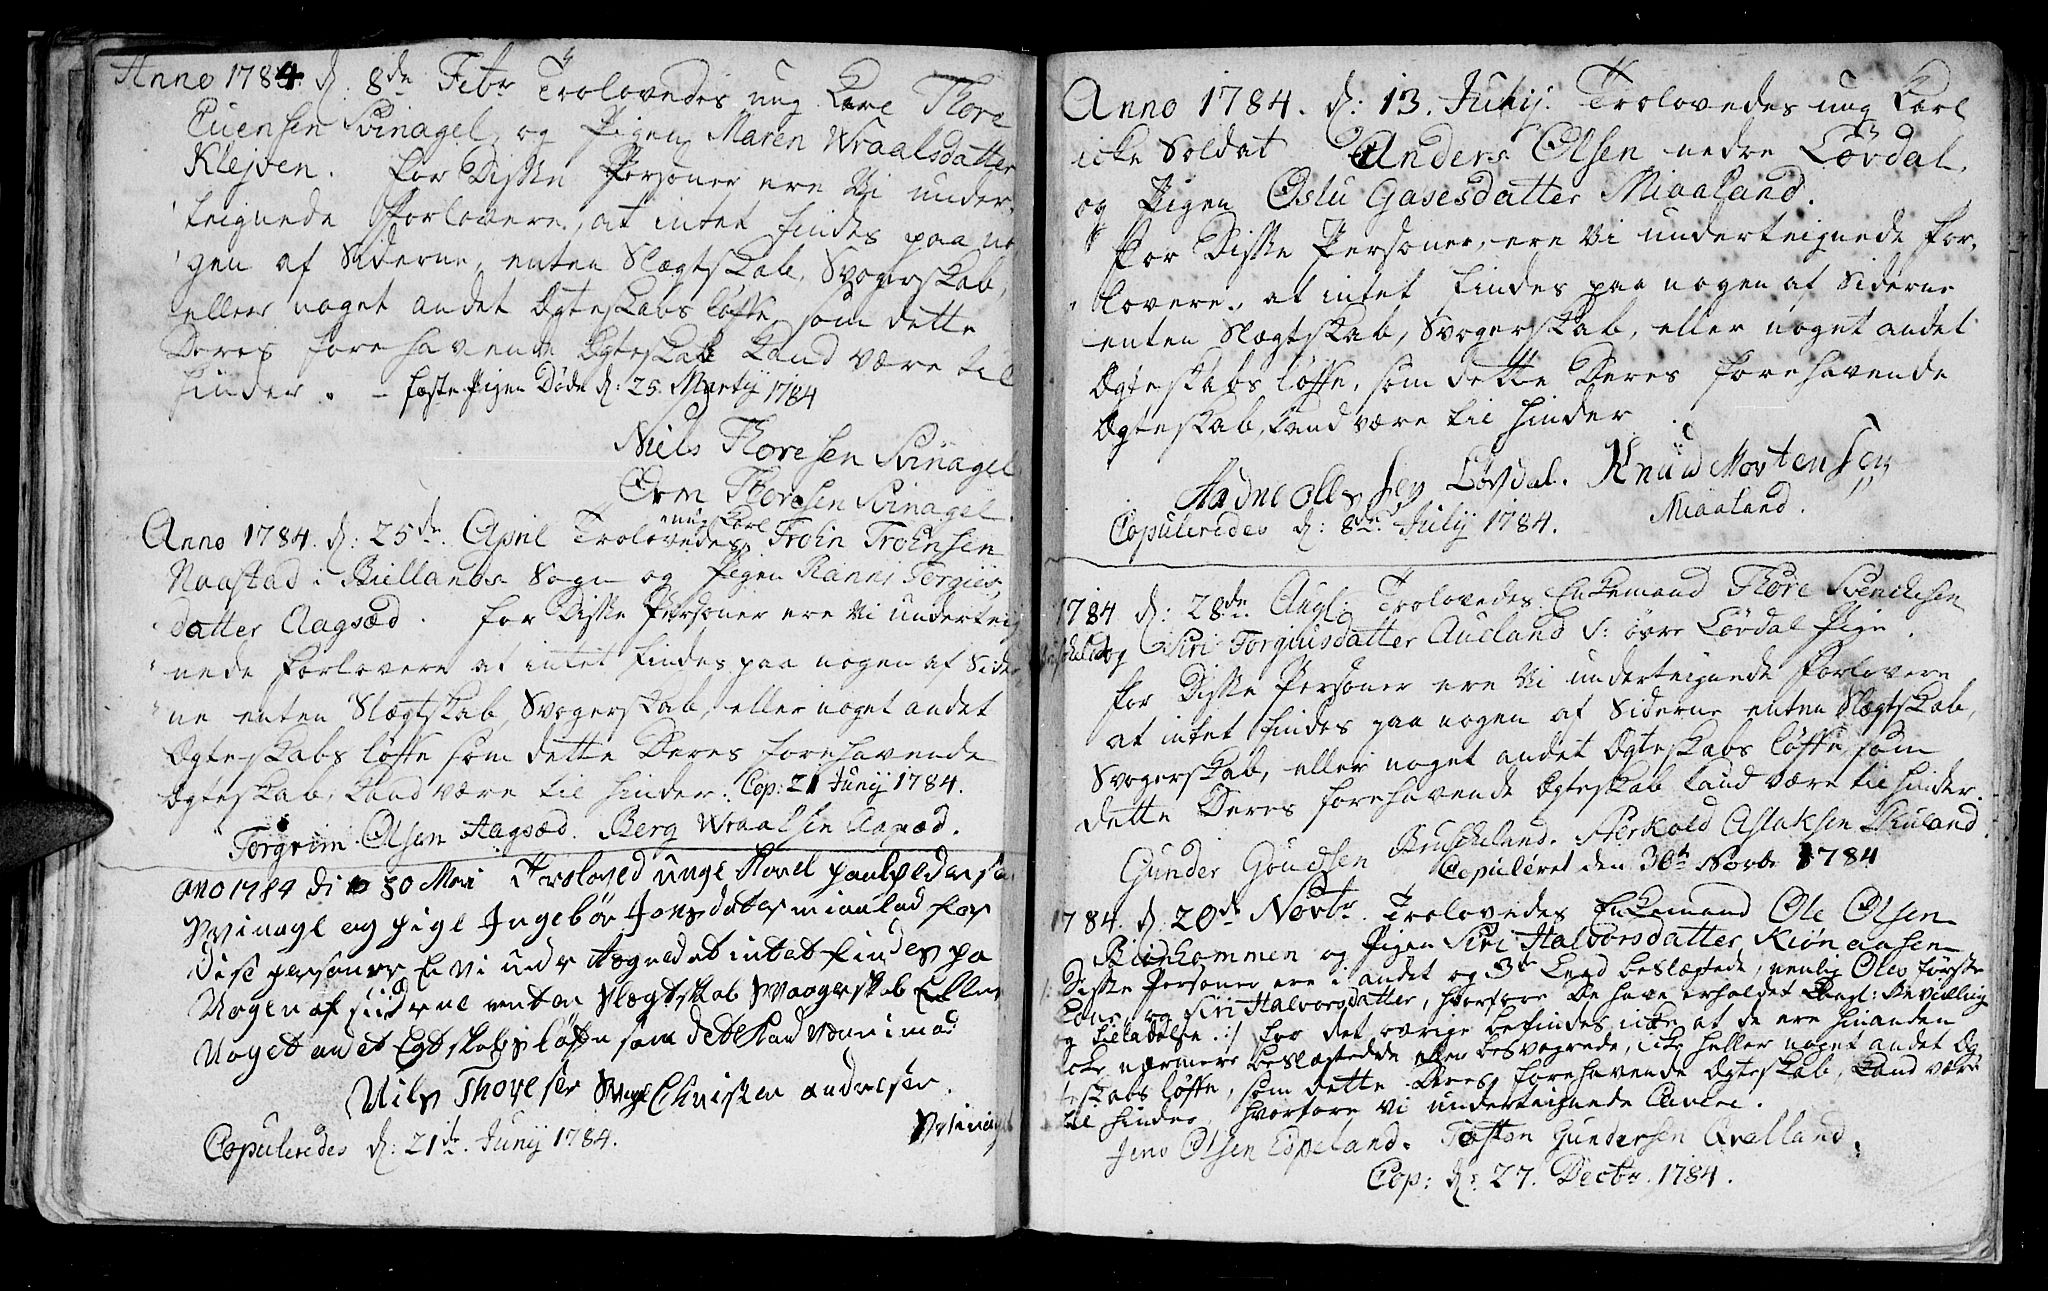 Anno 1784. d. 8de Febr Trolovedes ung Karl Thore
Euensen Svinagel, og Pigen Maren Wraalsdatter
Klejven. For Disse Personer ere Vi under-
teignede Forlovere, at intet findes paa no
gen af Siderne, enten Slægtskab, Svogerskab,
eller noget andet Ægteskabs løffte, som dette
Deres forehavende Ægteskab kand være til
hinder. - Fæste Pigen Døde d: 25. Martij 1784
Niels Thoresen Svinagel
Orm Thoresen Svinagel.
ung Karl
Anno 1784. d: 25de April Trolovedes Trohn Trohnsen
Naastad i Biellands Sogn og Pigen Ranni Torgius
datter Aagsæd. For Disse Personer ere Vi underteig
nede Forlovere at intet findes paa nogen af Sider
ne enten Slægtskab, Svogerskab, eller noget andet
Ægteskabs løffte som dette Deres forehavende
Ægteskab, kand være til hinder. Cop: 21 Junij 1784.
Torgrim Olsen Aagsæd. Berg Wraalsen Aagsæd.
ano 1784 di 30 Mai Troloved unge Karl
Svinagl og pige Ingebör Jonsdater miaalad for
dise personer E vi undr tegnedet intet findes pa
Nogen af siiderne enten slegtskab Svaagerskab Eller
Noget andet Egtskabs løfte som dete kand være imod
Nils Thoresen Christen andresen.
Svinagel
Copuleredes d: 21de Junij 1784.
Anno 1784. d: 13. Junij. Trolovedes ung Karl
icke Soldat Anders Olsen nedre Løvdal,
og Pigen Oslu Gasesdatter Miaaland.
For Disse Personer, ere Vi underteignede For-
lovere, at intet findes paa nogen af Siderne
enten Slægtskab, Svogerskab, eller noget andet
Ægteskabs løffte, som dette Deres forehavende
Ægteskab, kand være til hinder.
Aadne ollssen Løvdal. Knüd Mortensen
Miaaland.
Copuleredes d: 8de Julij 1784.
1784 d: 28de Aug: Trolovedes Enkemand Thore Svenchesen
og Siri Torgiusdatter Aueland v: øvre Løvdal Pige.
For Disse Personer ere Vi underteignede Forlovere
at intet findes paa nogen af Siderne enten Slægtskab,
Svogerskab, eller noget andet Ægteskabs løffte, som
dette Deres forehavende Ægteskab kand være til hinder.
Gunder Goutsen Bruskeland. Aslaksen
Copuleret den 30te Novbr 1784
1784. d: 20de Novbr. Trolovedes Enkemand Ole Olsen
og Pigen Siri Halvorsdatter Kiønaasen
Disse Personer ere i andet og 3die Leed beslægtede, nemlig Oles første
Kone, og Siri Halvorsdatter, hvorfore De have erholdet Kongl: Bevilling
og Tilladelse :/ for det øvrige befindes icke at de ere hinanden
icke nærmere beslægtede eller besvogrede, icke heller noget andet Æg
teskabs løffte, som dette Deres forehavende Ægteskab, kand være
til hinder, hvorfore Vi underteignede Cavere.
Jens Olsen Espeland. Tosten Gundersen Qvelland.
Cop: d: 27. Decbr. 1784.